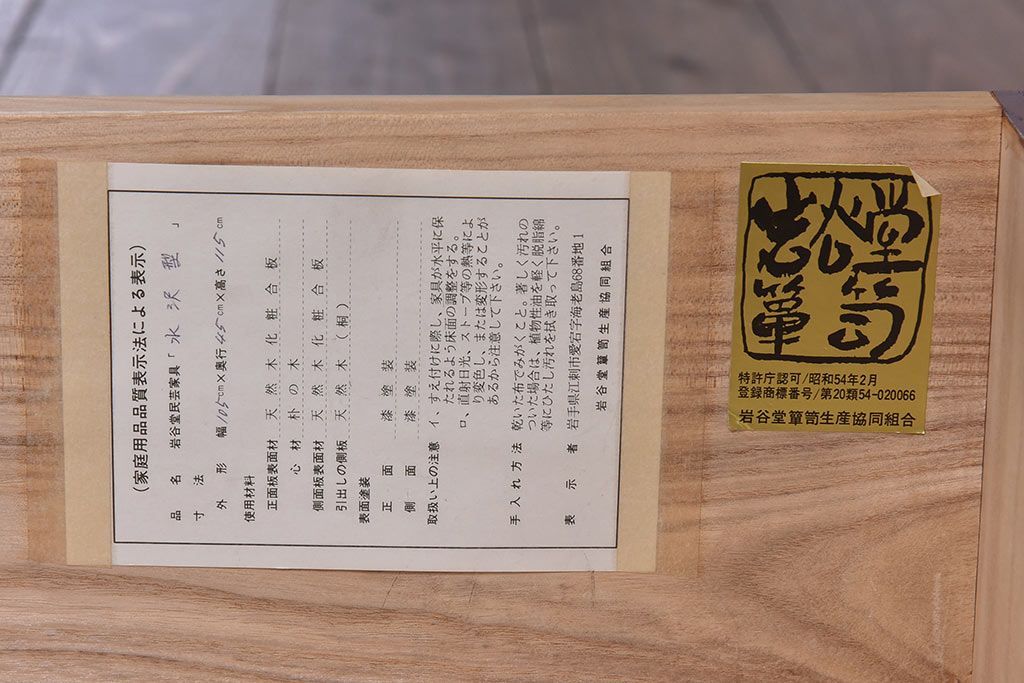 (家庭用品品質表示法による表示)
品名 岩谷堂民芸家具「水沢型」
寸法
外形 幅105cm×奥行45cm×高さ115cm
使用材料
正面板表面材 天然木化粧合板
心材 朴の木
側面板表面材 天然木化粧合板
引出しの側板 天然木(桐)
表面塗装
正面 漆塗装
側面 漆塗装
取扱い上の注意 イ、すえ付けに際し、家具が水平に保
たれるよう床面の調整をする。
ロ、直射日光、ストーブ等の熱等によ
り変色し、または変形することが
あるから注意して下さい。
手入れ方法 乾いた布でみがくこと。著しく汚れの
ついた場合は、植物性油を軽く脱脂綿
等にひたし汚れを拭き取って下さい。
表示者 岩手県江刺市愛宕字海老島68番地1
岩谷堂簞笥生産協同組合
岩谷堂
簞笥
特許庁認可/昭和54年2月
登録商標番号/第20類54-020066
岩谷堂簞笥生産協同組合